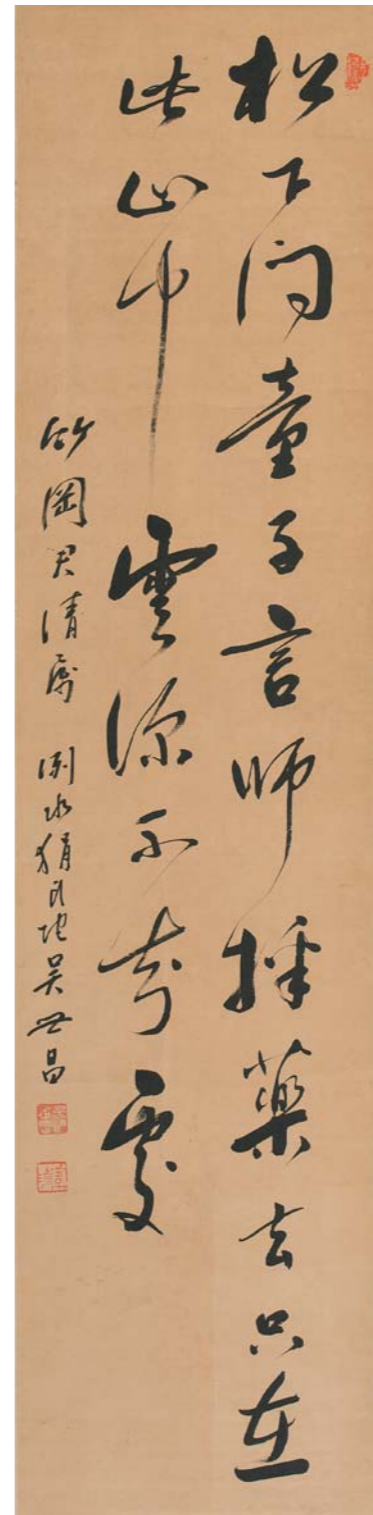 松下問童子言師採藥去只在
此山中雲深不知處
竹岡君清屬 洌水狷吳世昌